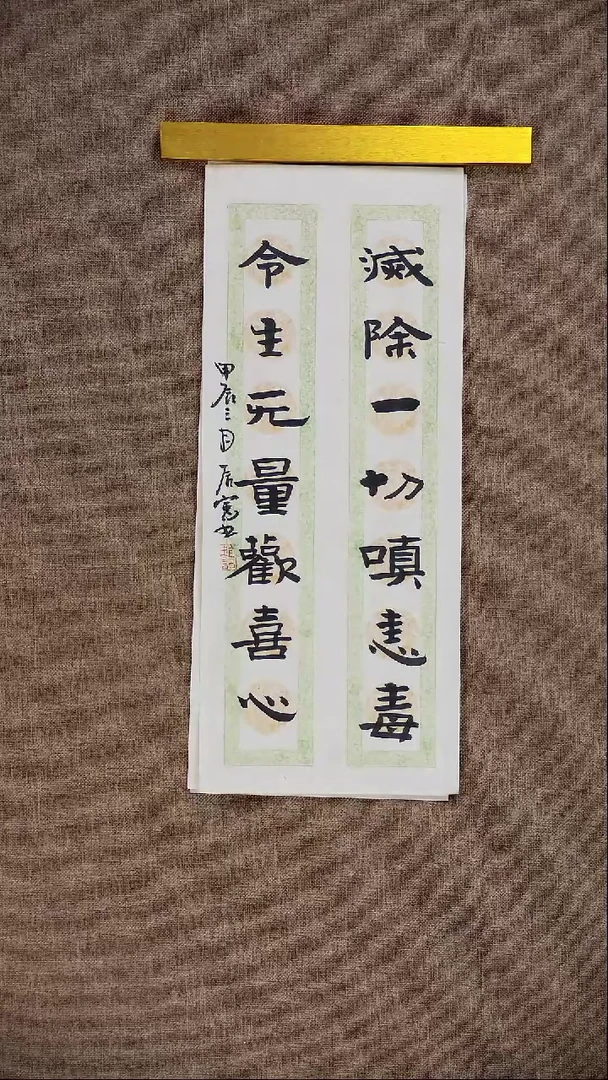 滅除一切嗔恚毒
令生无量歡喜心
甲辰三月